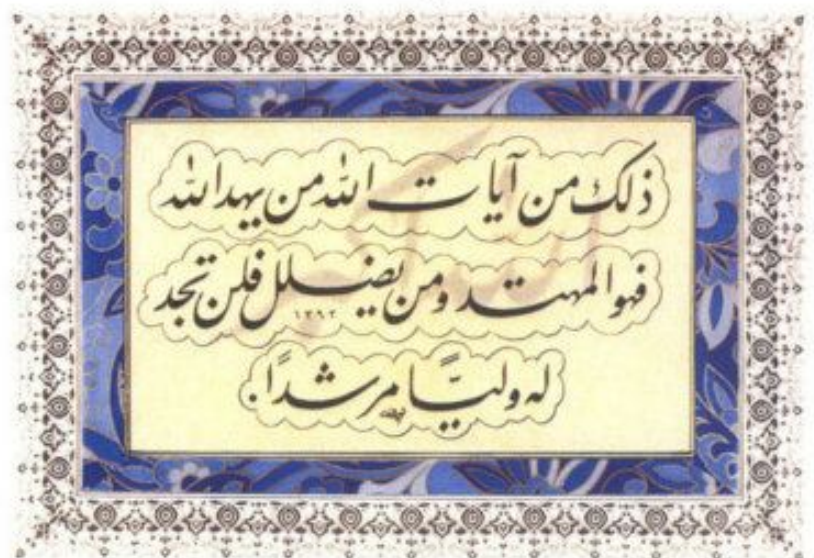 ذلك من آيات الله من يهد الله
فهو المهتد ومن يضلل فلن تجد
١٣٩٢
له وليًّا مرشدًا.